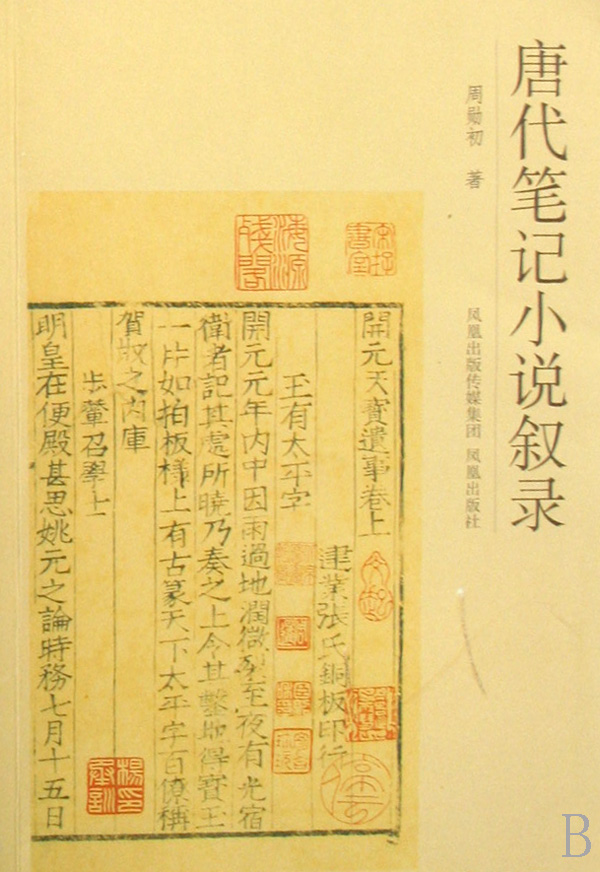 唐代笔记小说叙录
周勋初 著
凤凰出版传媒集团 凤凰出版社
宋存書室
海源殘閣
開元天寶遺事卷上
建業張氏銅板印行
玉有太平字
開元元年内中因雨過地潤微裂至夜有光宿
衛者記其處所曉乃奏之上令其鑿地得寶玉
一片如拍板樣上有古篆天下太平字百僚稱
賀收之内庫
步輦召學士
楊印承訓
明皇在便殿甚思姚元之論時務七月十五日
B